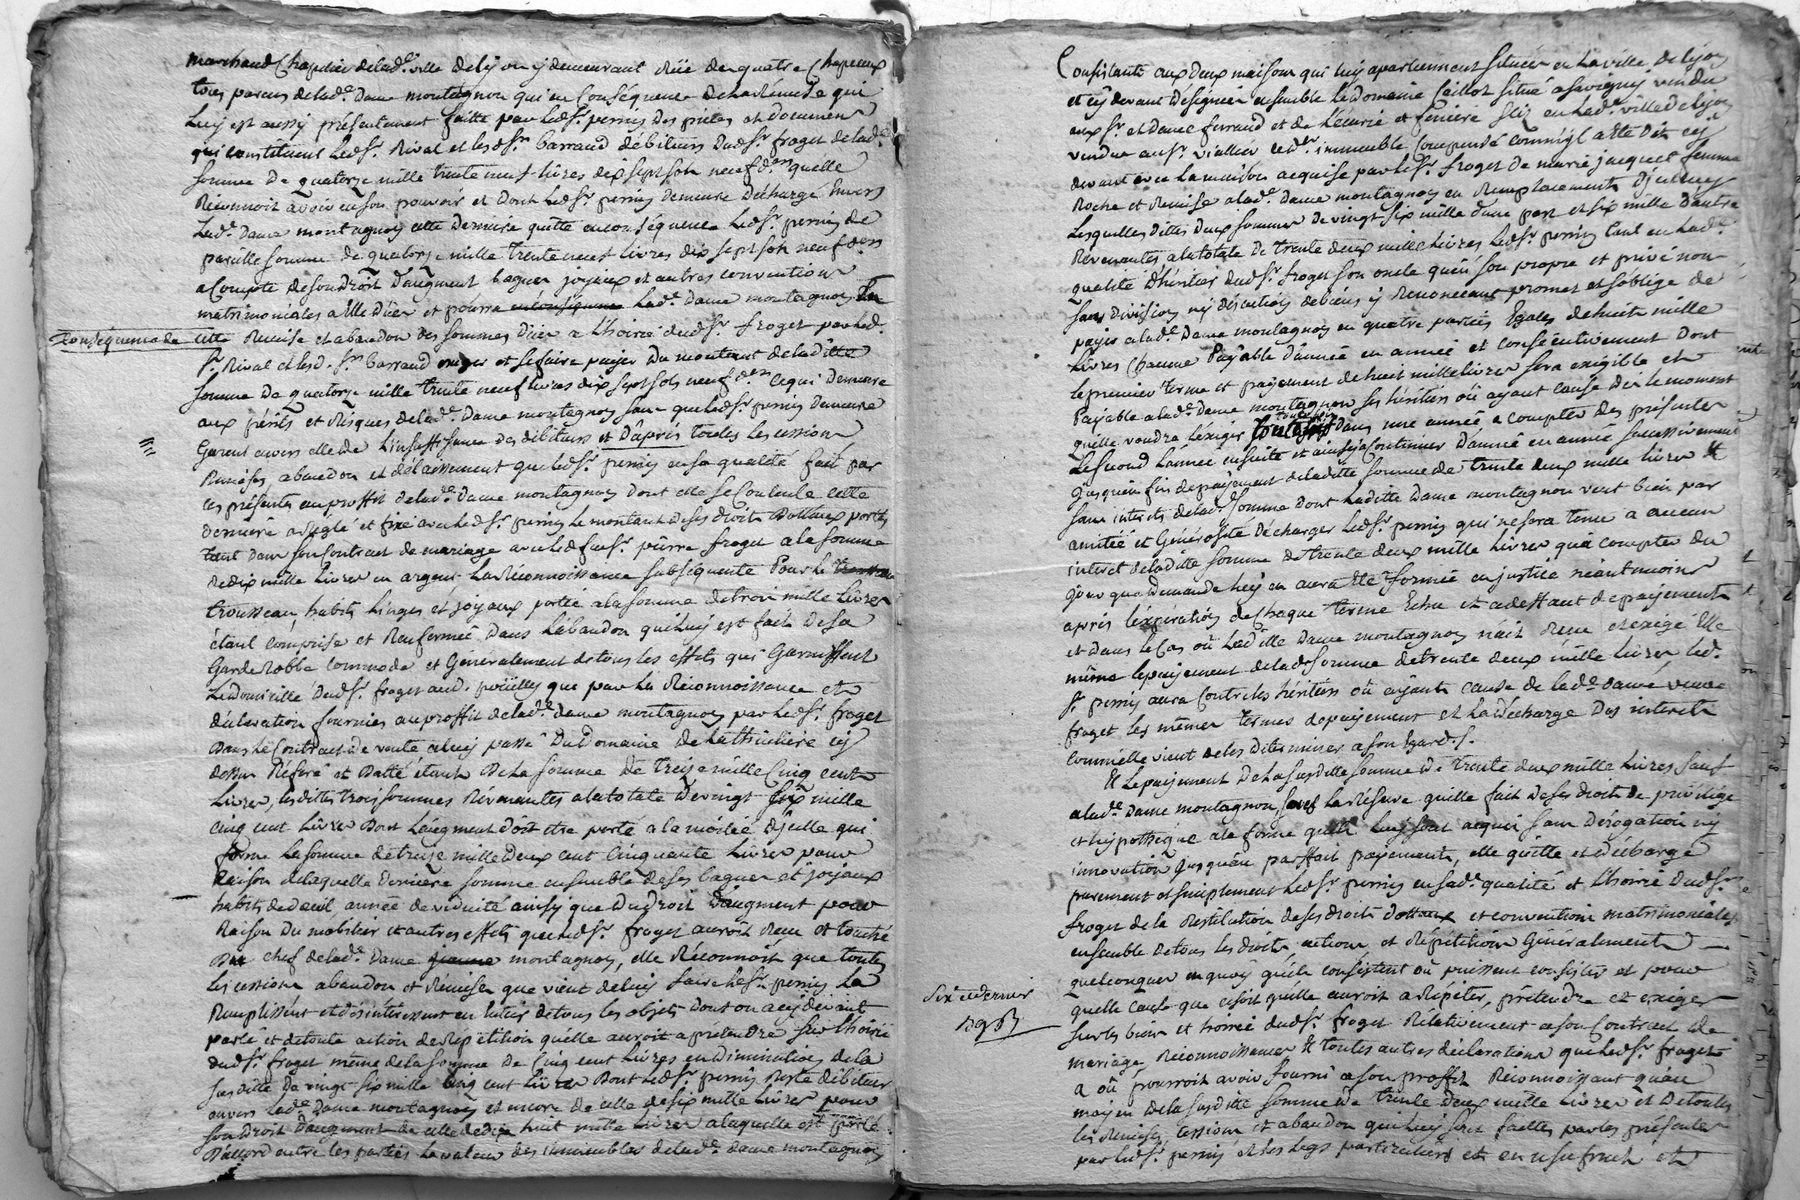 marchand Chapelier de lad.e ville de Lyon y demeurant Rüe des quatre Chapeaux
tous parens de lad.e Dame montagnon qui en Conséquence de la Rémise qui
Luy est aussy présentement faitte par led. Sr. pernis des pieces et documens
qui constituent led. Sr. Rival et lesd. Srs. barraud débiteurs dud. Sr. froget de lad.e
somme de quatorze mille trente neuf livres dix sept sols neuf d.ers quelle
Réconnoit avoir en son pouvoir et dont led. Sr. pernis demeure déchargé Envers
Lad.e Dame montagnon cette derniere quitte en conséquence led. Sr. pernis de
pareille somme de quatorze mille trente neuf livres dix sept sols neuf d.ers
a Compte de son droit d'augment bagues joyaux et autres conventions
matrimoniales a Elle düer et pourra en conséquence Lad.e Dame montagnon En
conséquence de cette Remise et abandon des sommes düer a L'hoirie dud. Sr. froget par led.
Sr. Rival et les d. Srs. barraud exiger et se faire payer du montant de laditte
somme de quatorze mille trente neuf livres dix sept sols neuf d.ers ce qui demeure
aux périls et Risques de lad.e Dame montagnon sans que led. Sr. pernis demeure
Garent envers elle de L'insuffisance des débiteurs et D'après toutes les cessions
Remises, abandon et délaissement que led. Sr. pernis en sa qualité fait par
ces présentes au proffit de lad.e Dame montagnon dont elle se Contente cette
derniere a Réglé et fixé avec led. Sr. pernis Le montant de ses droits Dottaux portés
tant dans son Contract de mariage avec led. feu Sr. pierre froget a la somme
de dix mille Livres en argent, La Réconnoissance subséquente Pour le
trousseau, habits, Linges et joyaux portée a la somme de trois mille Livres
étant comprise et Renfermée Dans L'abandon qui Luy est fait de sa
Garderobbe Commode et Généralement de tous les effets qui Garnissent
Le domicille dud. Sr. froget aud. que par La Réconnoissance et
déclaration fournies au proffit de lad.e Dame montagnon par led. Sr. froget
Dans Le Contract de vente a luy passé Du Domaine de La cy
dessus Référé et Datté étant De La somme De treize mille Cinq cent
Livres, lesdittes trois sommes Révenantes a la totale De vingt six mille
cinq cent Livres Dont L'augment doit etre porté a la moitié d'jcelle qui
forme La somme de treize mille Deux cent Cinquante Livres pour
Raison de laquelle Derniere somme ensemble de ses bagues et joyaux
habits de deuil année de viduité ainsy que Du droit D'augment pour
Raison Du mobilier et autres effets que led. Sr. froget auroit Reçu et touché
Du chef de lad.e Dame montagnon, elle Réconnoit que toutes
Les cessions abandon et Rémises que vient de luy faire le Sr. pernis La
Remplissent et désintéressent en entier de tous les objets Dont on a cy devant
parlé et de toute action de Répétition qu'elle auroit a prétendre sur L'hoirie
dud. Sr. froget même de la somme De Cinq cent Livres en diminution de la
susditte De vingt six mille cinq cent Livres Dont led. Sr. pernis Reste débiteur
envers Lad.e Dame montagnon et encore de celle de six mille Livres pour
son Droit D'augment de celle de dix huit mille Livres a laquelle est porté
D'accord entre les parties La valeur des immeubles de lad.e dame montagnon
Consistants aux Deux maisons qui luy apartiennent situées en La ville de Lyon
et cy devant désignées ensemble Le domaine Caillot situé a Savigny vendu
aux Sr. et Dame ferraud et de L'écurie et feniere sizes en Lad.e ville de Lyon
vendue au Sr. viallier led. immeuble Compensé comm'il a Eté dit cy
devant avec La maison acquise par led. Sr. froget de marie jacquet femme
Roche et Remise a lad.e Dame montagnon en Remplacement d'jceluy
Lesquelles dittes Deux sommes De vingt six mille d'une part et six mille d'autre
Révenantes a la totale De trente deux mille Livres led. Sr. pernis tant en lad.e
qualité D'héritier dud. Sr. froget son oncle qu'en son propre et privé nom
sans division ny discution de biens y Renonceant promet et s'oblige de
payer a lad.e Dame montagnon en quatre parties Egales de huit mille
Livres Chacune Payable d'année en année et consécutivement Dont
le premier terme et payement de huit mille livres sera exigible et
Payable a lad.e Dame montagnon ses héritiers où ayant cause Dès le moment
quelle voudra L'exiger toutefois Dans une année a Compter des présentes
Le second L'année ensuite et ainsy a Continuer D'année en année successivement
jusqu'en fin de payement de laditte somme de trente deux mille livres Et
sans interets de lad.e somme dont laditte Dame montagnon veut bien par
amitié et Générosité décharger led. Sr. pernis qui ne sera tenu a aucun
interet de laditte somme de trente deux mille Livres qu'a compter du
jour que demande luy en aura Eté formée en justice néantmoins
après L'éxpiration de Chaque terme Echu et a deffaut de payement
et dans le Cas où Laditte Dame montagnon n'ait Reçu et exigé Elle
même le payement de lad. somme de trente deux mille Livres led.
Sr. pernis aura Contre les héritiers où ayants cause de lad.e dame veuve
froget les mêmes termes de payement et La décharge Des interets
comm'elle vient de les déterminer a son Egard. /.
Et Le payement De La susditte somme De trente deux mille Livres fait
a lad.e Dame montagnon, sauf La Réserve qu'elle fait de ses droits De privilége
et hypotheque a la forme qu'ils Luy sont acquis sans Dérogation ny
innovation jusqu'au parffait payement, elle quitte et décharge
purement et simplement led. Sr. pernis en sad.e qualité et L'hoirie dud. Sr.
froget de la Restitution de ses droits dottaux et conventions matrimoniales
ensemble de tous les droits, actions et Répétitions Généralement
quelconques en quoy qu'ils consistent où puissent consister et pour
quelle cause que ce soit qu'elle auroit a Répéter, prétendre et exiger
Sur les biens et hoirie dud. Sr. froget Rélativement a son Contract de
mariage, Réconnoissances Et toutes autres déclarations que led. Sr. froget
a où pourroit avoir fourni a son proffit Réconnoissant qu'au
moyen de la susditte somme De trente deux mille Livres et De toutes
les Remises, cessions et abandon qui luy sont faittes par les présentes
par led. Sr. pernis et des Legs particuliers et en usufruit et